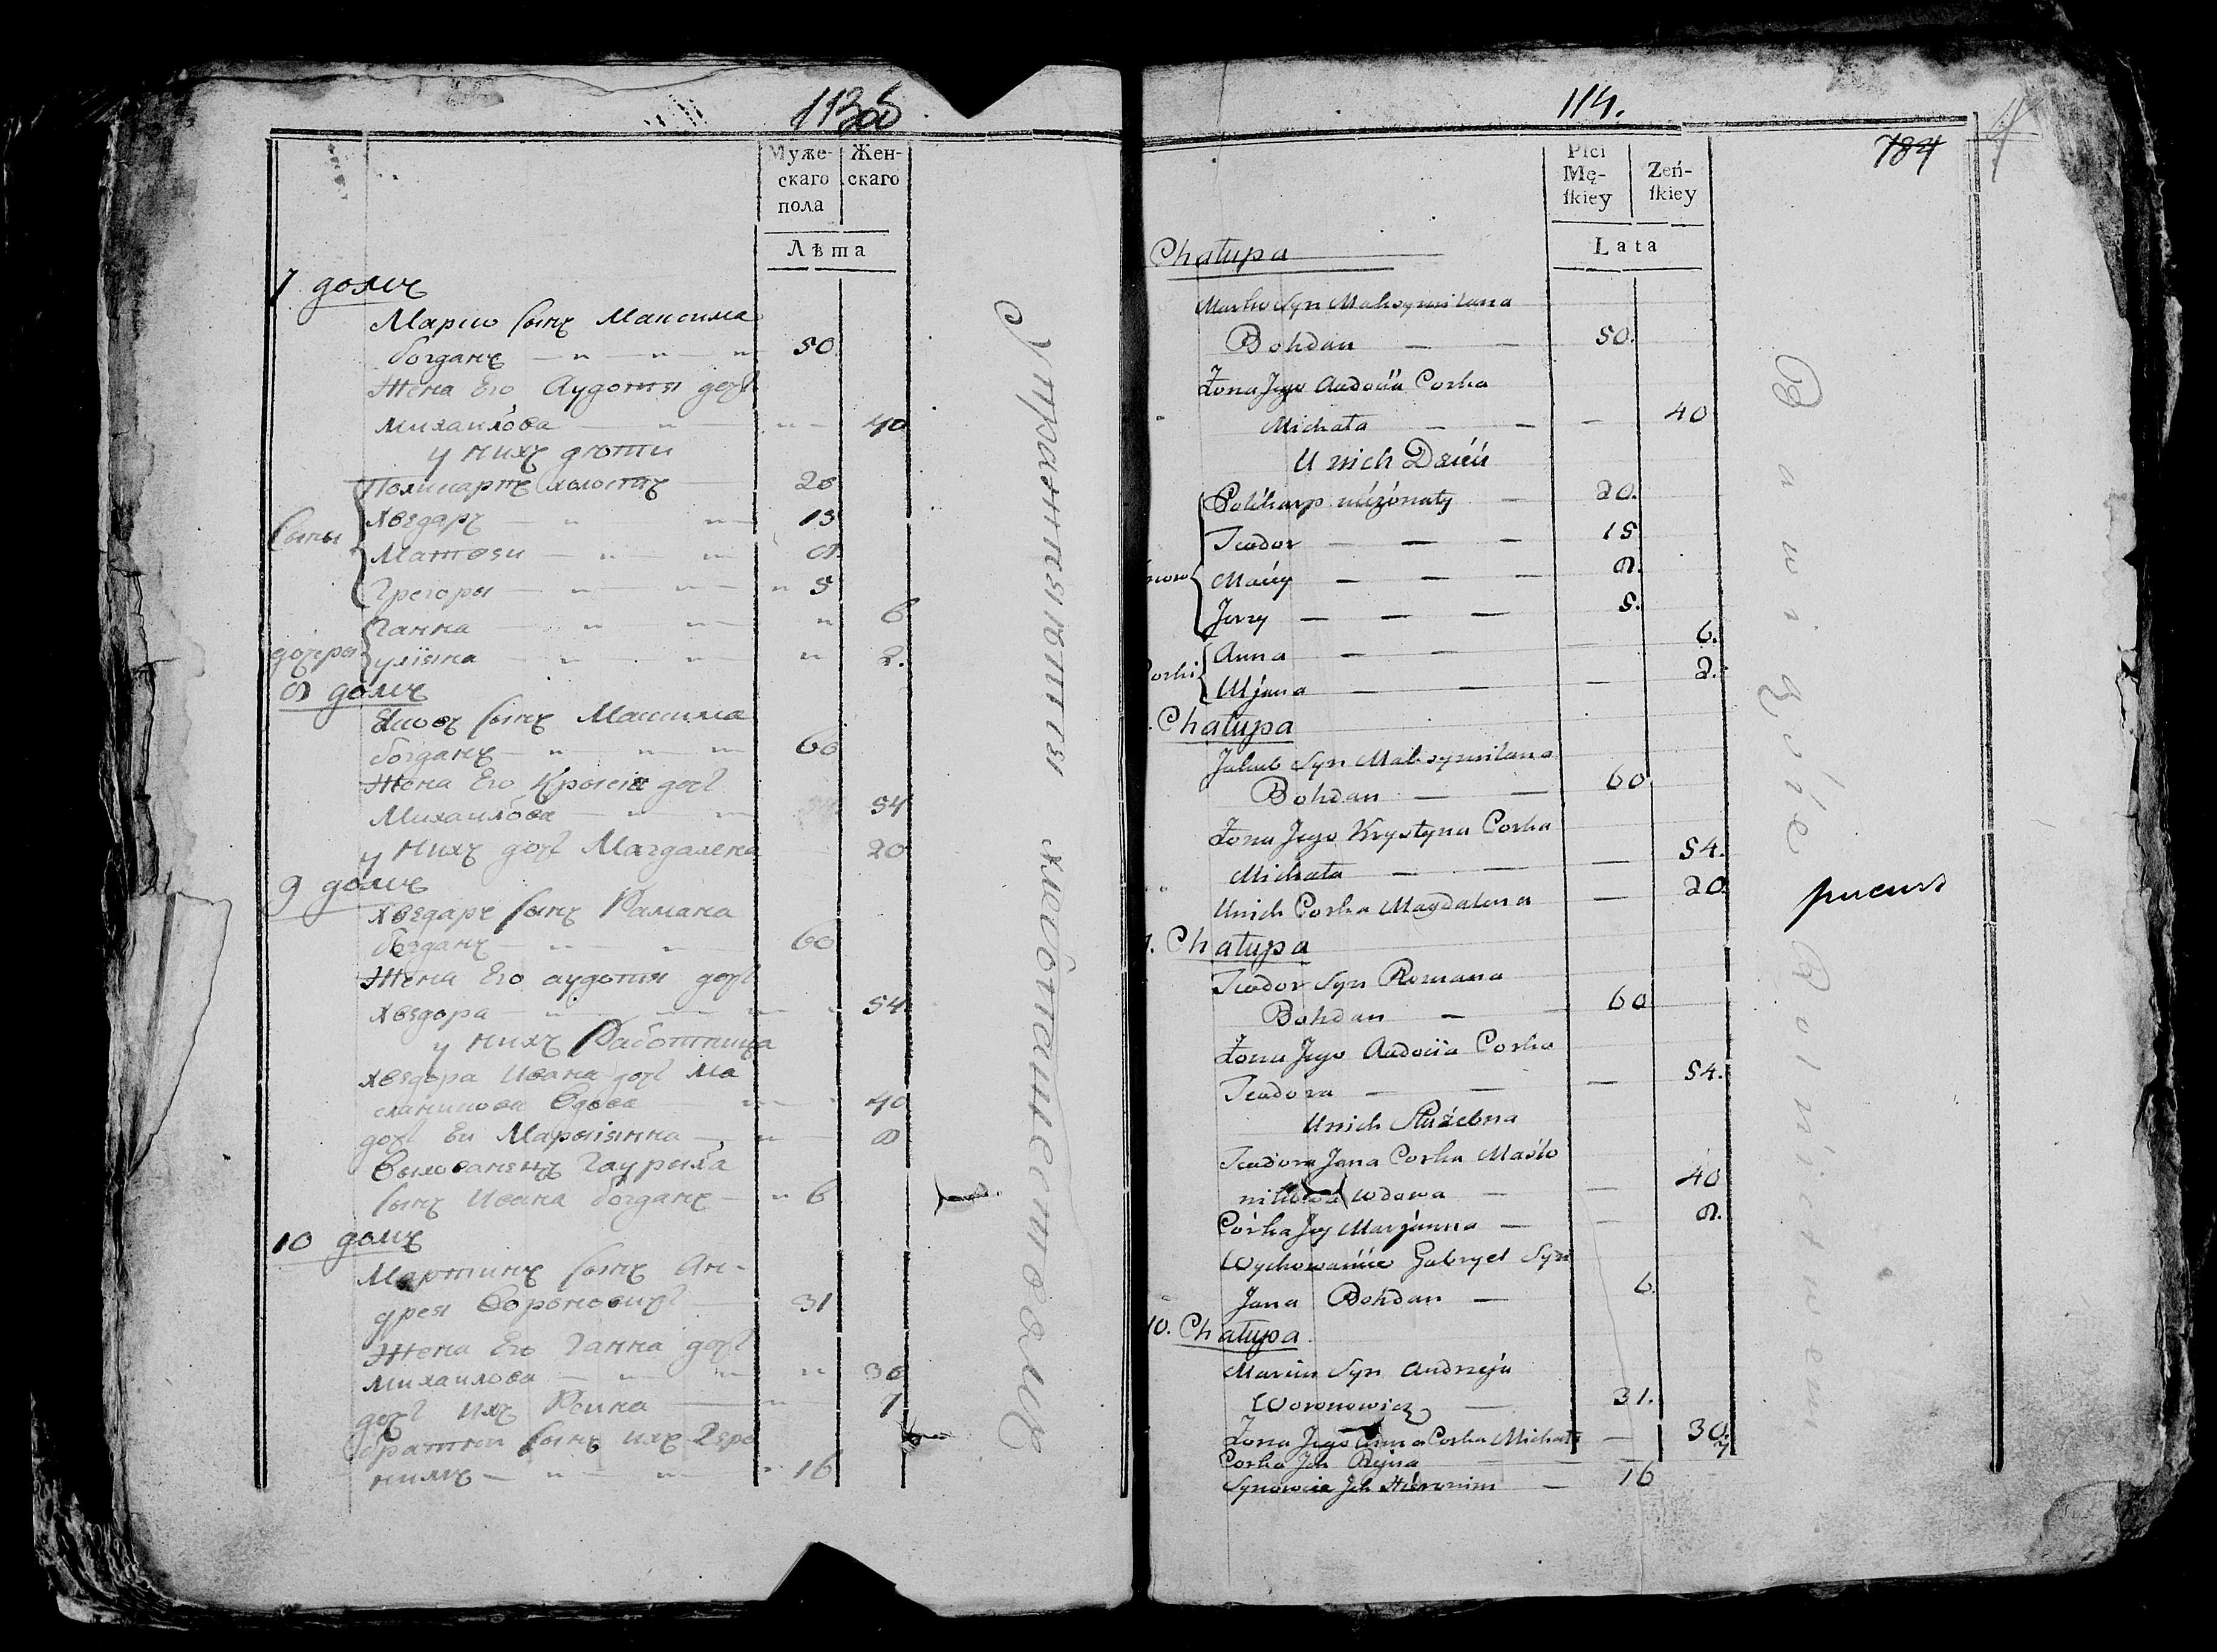 113 об
Муже-
скаго
пола
Жен-
скаго
Лѣта
7 домъ
Марко сынъ Максима
богданъ — " — " — " 50
Жена Его Аудотия дочь
михаилова — " — " — 40
у нихъ дѣти
Сыны
Поликарпъ холостъ 20
хведаръ — " — " 15
Матвей — " — " 8
Грегоры — " — " — " 5
дочери
Ганна — " — " — " 6
улiяна — " — " — " 2.
8 домъ
сынъ Максима
богданъ — " — " — " 60
Жена Его Крыстя дочь
Михаилова — " — 54
у нихъ дочь Магдалена 20
9 домъ
хведаръ сынъ Рамана
богданъ — " — 60
Жена Его аудотия дочь
хведора — " — " — 54
у нихъ Работница
хведора Ивана дочь Ма
сланикова вдова — " 40
дочь Еи Марыiянна — " — 8
выхованецъ Гаурыла
сынъ Ивана богданъ — " 6
10 домъ
Мартинъ сынъ Ан-
дрея Вороновичъ — 31
Жена Его Ганна дочь
михаилова — " — " — " 30
дочь ихъ — " — 7
сынъ ихъ Геро
нимъ — " — " — " 16
114.
784
Płci
Mę-
ſkiey
Żeń-
ſkiey
Lata
Chałupa
Marko Syn Maksymilana
Bohdan — — 50.
Żona Jego Audocia Corka
Michała — — — 40
U nich Dzieci
Polikarp nieżonaty — 20.
Teodor — — — 15
Maciey — — — 8.
Jerzy — — — 5.
Anna — — — 6.
Uljana — — — 2.
Chałupa
Jakub Syn Maksymilana
Bohdan — — 60
Żona Jego Krystyna Corka
Michała — — — 54.
U nich Corka Magdalena — 20.
9. Chałupa
Teodor Syn Romana
Bohdan — — 60
Żona Jego Audocia Corka
Teodora — — — 54.
U nich Służebna
Teodora Jana Corka Masło
nikowa wdowa — — 40
Córka Jey Marjanna — — 8.
Wychowaniec Gabryel Syn
Jana Bohdan — 6.
10. Chałupa
Marcin Syn Andrzeja
Woronowicz — 31.
Żona Jego Anna Corka Michała — 30.
Corka Jch Rejna — — 7
Synowiec Jch Hieronim — 16